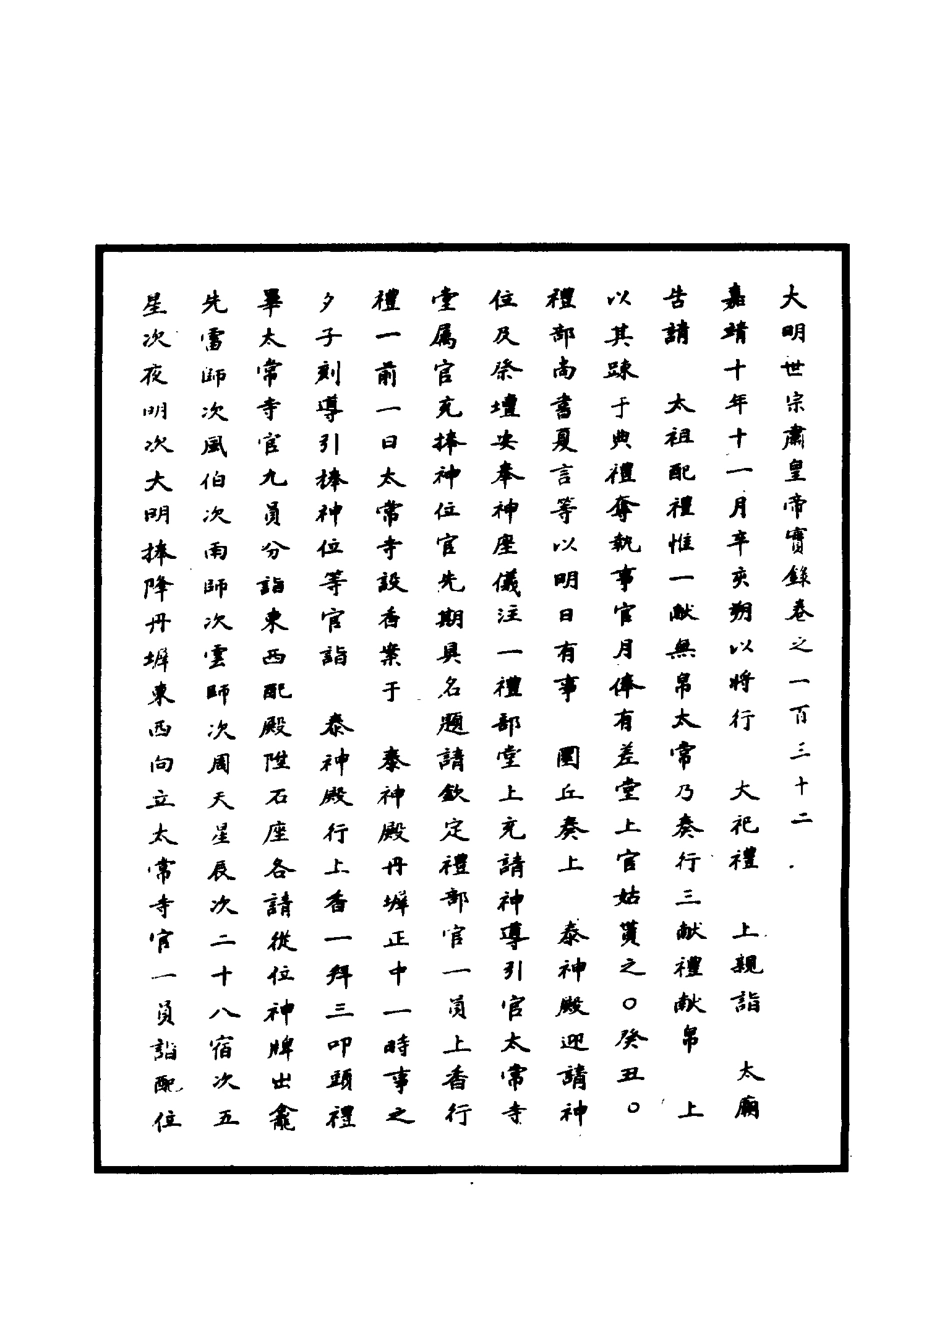 大明世宗肅皇帝實錄卷之一百三十二
嘉靖十年十一月辛亥朔以將行　大祀禮　上親詣　太廟
告請　太祖配禮惟一獻無帛太常乃奏行三献禮献帛　上
以其踈于典禮奪執事官月俸有差堂上官姑貰之○癸丑○
禮部尚書夏言等以明日有事　圜丘奏上　泰神殿迎請神
位及祭壇安奉神座儀注一禮部堂上充請神導引官太常寺
堂属官充捧神位官先期具名題請欽定禮部官一員上香行
禮一前一日太常寺設香案于　泰神殿丹墀正中一時事之
夕子刻導引捧神位等官詣　泰神殿行上香一拜三叩頭禮
畢太常寺官九員分詣東西配殿陞石座各請從位神牌出龕
先雷師次風伯次雨師次雲師次周天星辰次二十八宿次五
星次夜明次大明捧降丹墀東西向立太常寺官一員詣配位